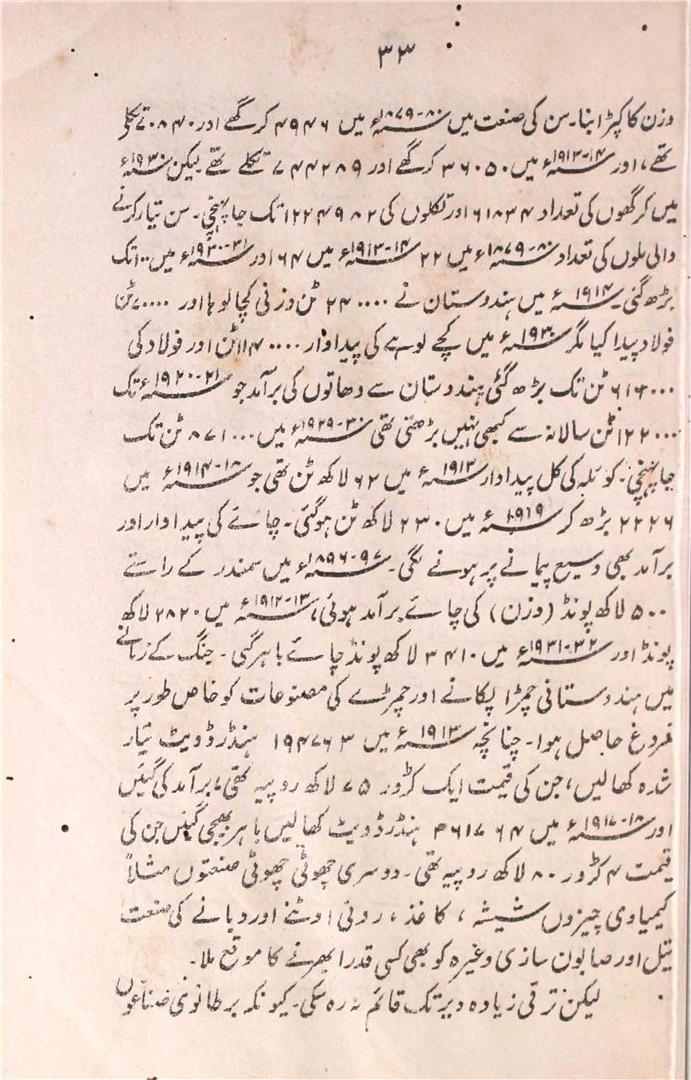 ۳۳
وزن کا کپڑا بنا۔ سن کی صنعت میں ۸۰-۱۸۷۹ء میں ۴۹۴۶ کرگھے اور ۷۰۸۴۰ تکلی
تھے، اور ۱۴-۱۹۱۳ء میں ۳۶۰۵۰ کرگھے اور ۷۴۴۲۸۹ تکلے تھے لیکن ۱۹۳۰ء
میں کرگھوں کی تعداد ۶۱۸۳۴ اور تکلوں کی ۱۲۲۴۹۸۲ تک جا پہنچی۔ سن تیار کرنے
والی ملوں کی تعداد ۸۰-۱۸۷۹ء میں ۲۲ ۱۴-۱۹۱۳ء میں ۶۴ اور ۳۱-۱۹۳۰ء میں ۱۰۰ تک
بڑھ گئی۔ ۱۹۱۴ء میں ہندوستان نے ۲۴۰۰۰۰ ٹن وزنی کچا لوہا اور ۷۰۰۰۰ ٹن
فولاد پیدا کیا مگر ۱۹۳۰ء میں کچے لوہے کی پیداوار ۱۱۴۰۰۰۰ ٹن اور فولاد کی
۶۱۶۰۰۰ ٹن تک بڑھ گئی ہندوستان سے دھاتوں کی برآمد جو ۲۱-۱۹۲۰ء تک
۱۲۲۰۰۰ ٹن سالانہ سے کبھی نہیں بڑھتی تھی ۳۰-۱۹۲۹ء میں ۸۷۱۰۰۰ ٹن تک
جا پہنچی۔ کوئلہ کی کل پیداوار ۱۹۱۲ء میں ۶۲ لاکھ ٹن تھی جو ۱۸-۱۹۱۴ء میں
۲۲۲۶ بڑھ کر ۱۹۱۹ء میں ۲۳۰ لاکھ ٹن ہو گئی۔ چائے کی پیداوار اور
برآمد بھی وسیع پیمانے پر ہونے لگی۔ ۹۷-۱۸۹۶ء میں سمندر کے راستے
۵۰۰ لاکھ پونڈ (وزن) کی چائے برآمد ہوئی، ۱۳-۱۹۱۲ء میں ۲۸۲۰ لاکھ
پونڈ اور ۳۲-۱۹۳۱ء میں ۳۴۱۰ لاکھ پونڈ چائے باہر گئی۔ جنگ کے زمانے
میں ہندوستانی چمڑا پکانے اور چمڑے کی مصنوعات کو خاص طور پر
فروغ حاصل ہوا۔ چنانچہ ۱۹۱۳ء میں ۱۹۴۷۶۳ ہنڈرڈ ویٹ تیار
شدہ کھالیں، جن کی قیمت ایک کروڑ ۷۵ لاکھ روپیہ تھی، برآمد کی گئیں
اور ۱۸-۱۹۱۷ء میں ۳۶۱۷۶۴ ہنڈرڈ ویٹ کھالیں باہر بھیجی گئیں جن کی
قیمت ۴ کروڑ ۸۰ لاکھ روپیہ تھی۔ دوسری چھوٹی چھوٹی صنعتوں مثلاً
کیمیاوی چیزوں شیشہ، کاغذ، روئی اوٹنے اور دبانے کی صنعت
تیل اور صابون سازی وغیرہ کو بھی کسی قدر ابھرنے کا موقع ملا۔
لیکن ترقی زیادہ دیر تک قائم نہ رہ سکی۔ کیونکہ برطانوی صناعوں